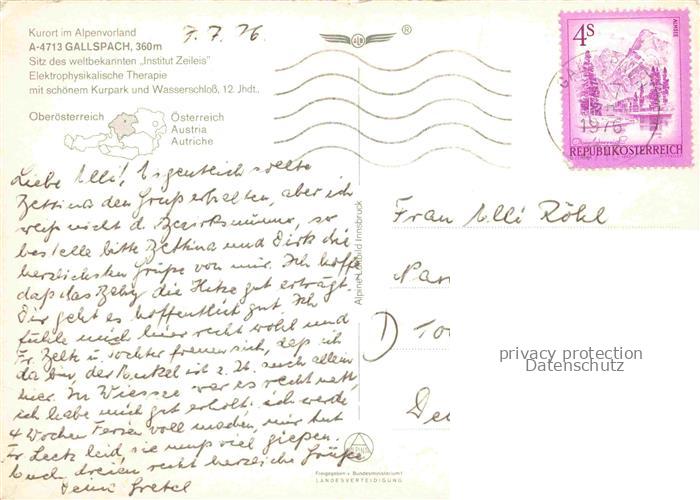 Kurort im Alpenvorland
A-4713 GALLSPACH, 360m
Sitz des weltbekannten „Institut Zeileis"
Elektrophysikalische Therapie
mit schönem Kurpark und Wasserschloß, 12. Jhdt.,
7.7.76.
®
Oberösterreich
Österreich
Austria
Autriche
4S
ALMSEE
1976
REPUBLIK ÖSTERREICH
Liebe Ulli! Eigentlich sollte
Bettina den Gruß erhalten, aber ich
weiß nicht d. Bezirksnummer, so
bestelle bitte Bettina und Dirk die
herzlichsten Grüße von mir. Ich hoffe
daß das Baby die Hitze gut erträgt.
Dir geht es hoffentlich gut. Ich
fühle mich hier recht wohl und
Fr. u. Tochter freuen sich, daß ich
da bin, der ist z. Zt. auch allein
hier. In Wiessee war es recht nett,
ich habe mich gut erholt. Ich werde
4 Wochen Ferien voll machen, nur tut
Fr. leid, sie muß viel gießen.
Euch dreien recht herzliche Grüße
Deine Gretel
Alpine Luftbild Innsbruck
Frau Ulli Röhl
D
privacy protection
Datenschutz
Freigegeben v. Bundesministerium f.
LANDESVERTEIDIGUNG